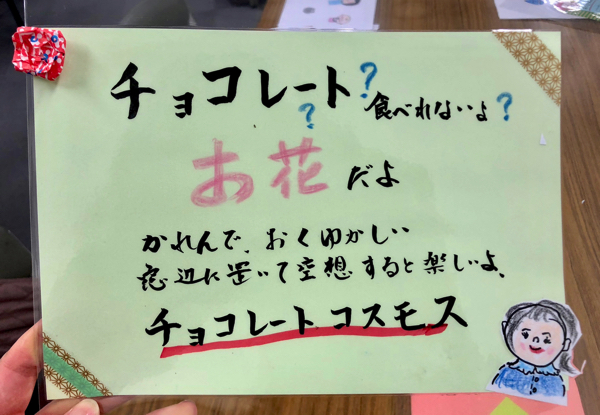 チョコレート?
?食べれないよ?
お花だよ
かれんで、おくゆかしい
窓辺に置いて空想すると楽しいよ、
チョコレートコスモス